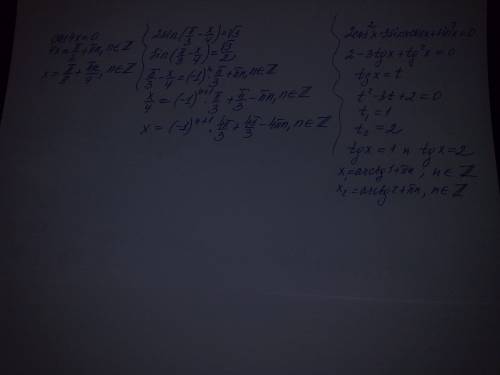 cos4x=0
4x=π/2+πn, n∈ℤ
x=π/8+πn/4, n∈ℤ
2sin(π/3-x/4)=√3
sin(π/3-x/4)=√3/2
π/3-x/4=(-1)ⁿ π/3+πn, n∈ℤ
x/4=(-1)ⁿ⁺¹·π/3+π/3-πn, n∈ℤ
x=(-1)ⁿ⁺¹·4π/3+4π/3-4πn, n∈ℤ
2cos²x-3sinxcosx+sin²x=0
2-3tgx+tg²x=0
tgx=t
t²-3t+2=0
t₁=1
t₂=2
tgx=1 и tgx=2
x₁=arctg1+πn, n∈ℤ
x₂=arctg2+πn, n∈ℤ